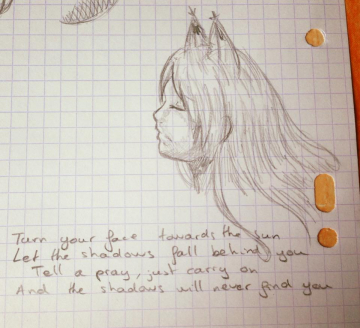 Turn your face towards the sun
Let the shadows fall behind you
Tell a pray, just carry on
And the shadows will never find you